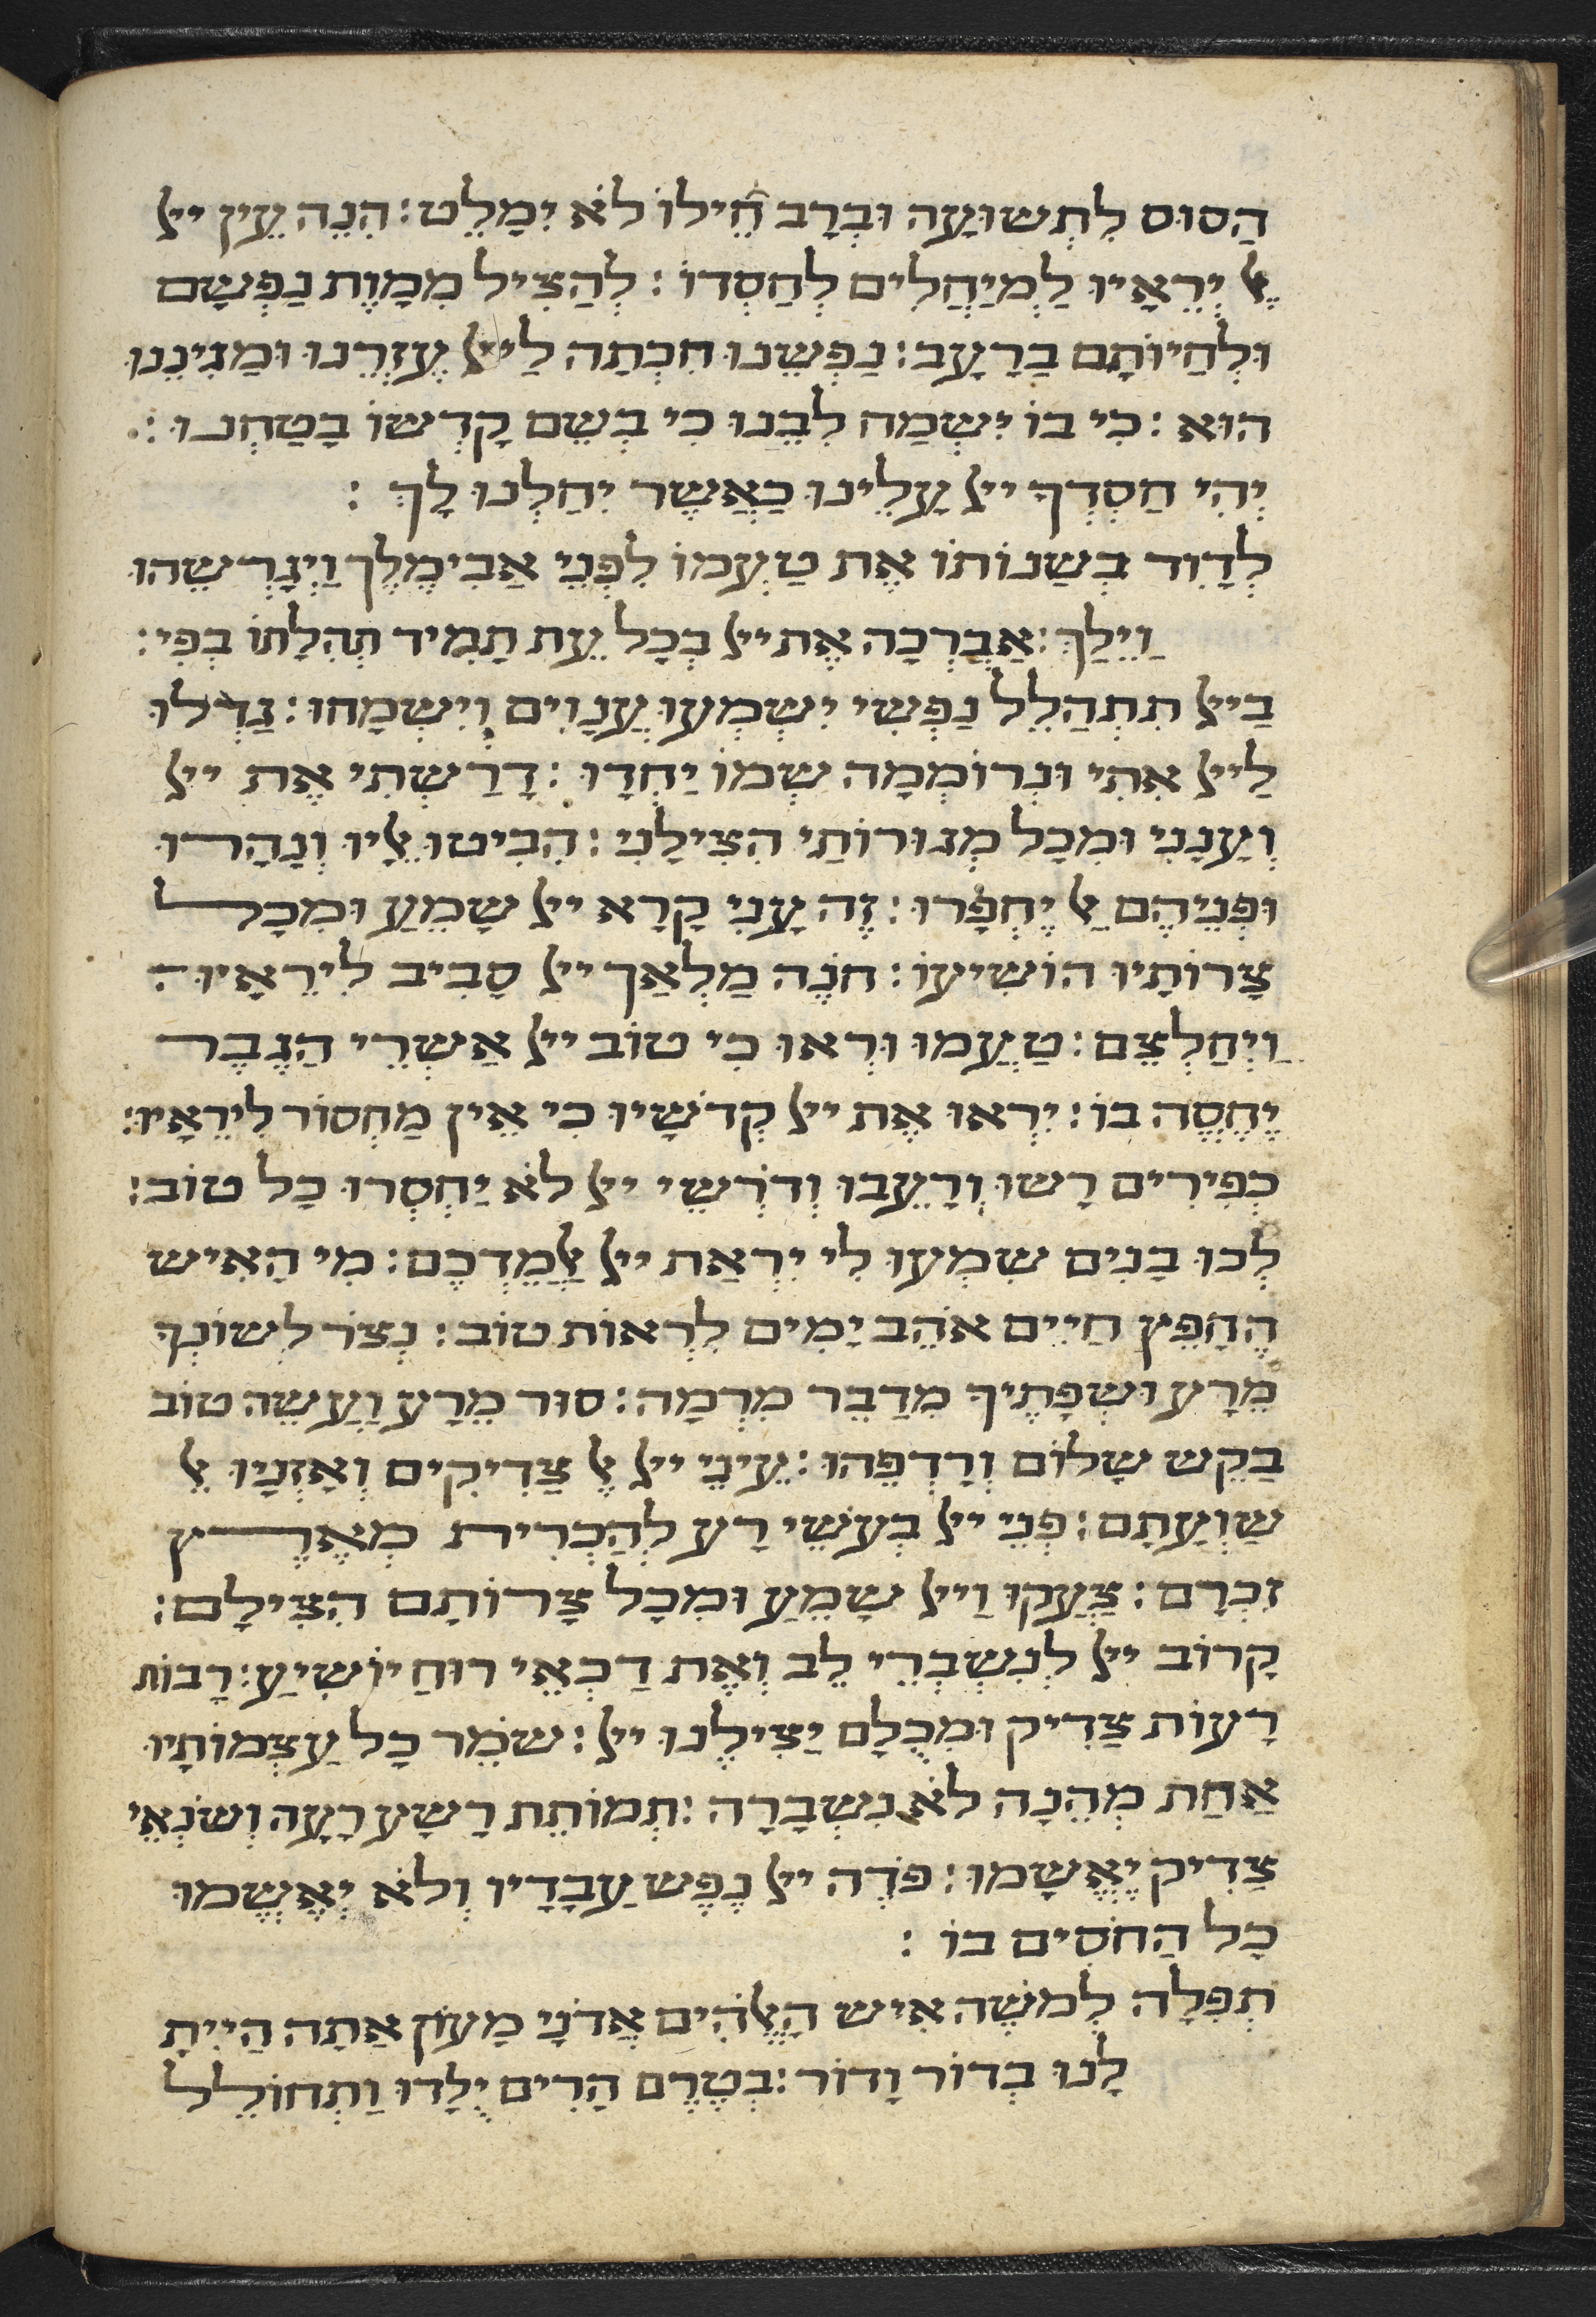 הַסוּס לִתְשוּעָה וּבְרָב חֵילוֹ לֹא יִמָלֵט: הִנֵה עֵין יי
אֶל יְרֵאָיו לַמְיַחֲלִים לְחַסְדוֹ: לְהַצִיל מִמָוֶת נַפְשָם
וּלְחַיוֹתָם בַרָעָב: נַפְשֵנוּ חִכְתָה לַיי עֶזְרֵנוּ וּמַגִינֵנוּ
הוּא: כִי בוֹ יִשְמַה לִבֵנוּ כִי בְשֵם קָדְשוֹ בָטַחְנוּ:
יְהִי חַסְדְךָ יי עָלֵינוּ כַאֲשֶר יִחַלְנוּ לָךְ:
לְדָוִד בְשַנוֹתוֹ אֶת טַעְמוֹ לִפְנֵי אֲבִימֶלֶך וַיְגָרְשֵהוּ
וַיֵלַךְ: אֲבָרְכָה אֶת יי בְכָל עֵת תָמִיד תְהִלָתוֹ בְפִי:
בַיי תִתְהַלֵל נַפְשִי יִשְמְעוּ עֲנָוִים וְיִשְמָחוּ: גַדְלוּ
לַיי אִתִי וּנְרוֹמְמָה שְמוֹ יַחְדָו: דָרַשְתִי אֶת יי
וְעָנָנִי וּמִכָל מְגוּרוֹתַי הִצִילָנִי: הִבִיטוּ אֵלָיו וְנָהָרוּ
וּפְנֵיהֶם אַל יֶחְפָרוּ: זֶה עָנִי קָרָא יי שָמֵעַ וּמִכָל
צָרוֹתָיו הוֹשִיעוֹ: חֹנֶה מַלְאַך יי סָבִיב לִירֵאָיו:
וַיְחַלְצֵם: טַעֲמוּ וּרְאוּ כִי טוֹב יי אַשְרֵי הַגֶבֶר
יֶחֱסֶה בוֹ: יִרְאוּ אֶת יי קְדֹשָיו כִי אֵין מַחְסוֹר לִירֵאָיו:
כְפִירִים רָשוּ וְרָעֵבוּ וְדֹרְשֵי יי לֹא יַחְסְרוּ כָל טוֹב:
לְכוּ בָנִים שִמְעוּ לִי יִרְאַת יי אֲלַמֵדְכֶם: מִי הָאִיש
הֶחָפֵץ חַיִים אֹהֵב יָמִים לִרְאוֹת טוֹב: נְצֹר לְשוֹנְךָ
מֵרָע וּשְפָתֶיךָ מִדַבֵר מִרְמָה: סוּר מֵרָע וַעֲשֵה טוֹב
בַקֵש שָלוֹם וְרָדְפֵהוּ: עֵינֵי יי אֶל צַדִיקִים וְאָזְנָיו אֶל
שַוְעָתָם: פְנֵי יי בְעֹשֵי רָע לְהַכְרִית מֵאֶרֶץ
זִכְרָם: צָעֲקוּ וַיי שָמֵעַ וּמִכָל צָרוֹתָם הִצִילָם:
קָרוֹב יי לְנִשְבְרֵי לֵב וְאֶת דַכְאֵי רוּחַ יוֹשִיעַ: רַבוֹת
רָעוֹת צַדִיק וּמִכֻלָם יַצִילֶנוּ יי: שֹמֵר כָל עַצְמוֹתָיו
אַחַת מֵהֵנָה לֹא נִשְבָרָה: תְמוֹתֵת רָשָע רָעָה וְשֹנְאֵי
צַדִיק יֶאֱשָמוּ: פֹדֶה יי נֶפֶש עֲבָדָיו וְלֹא יֶאֱשְמוּ
כָל הַחֹסִים בוֹ:
תְפִלָה לְמֹשֶה אִיש הָאֱלֹהִים אֲדֹנָי מָעוֹן אַתָה הָיִיתָ
לָנוּ בְדוֹר וָדוֹר: בְטֶרֶם הָרִים יֻלָדוּ וַתְחוֹלֵל